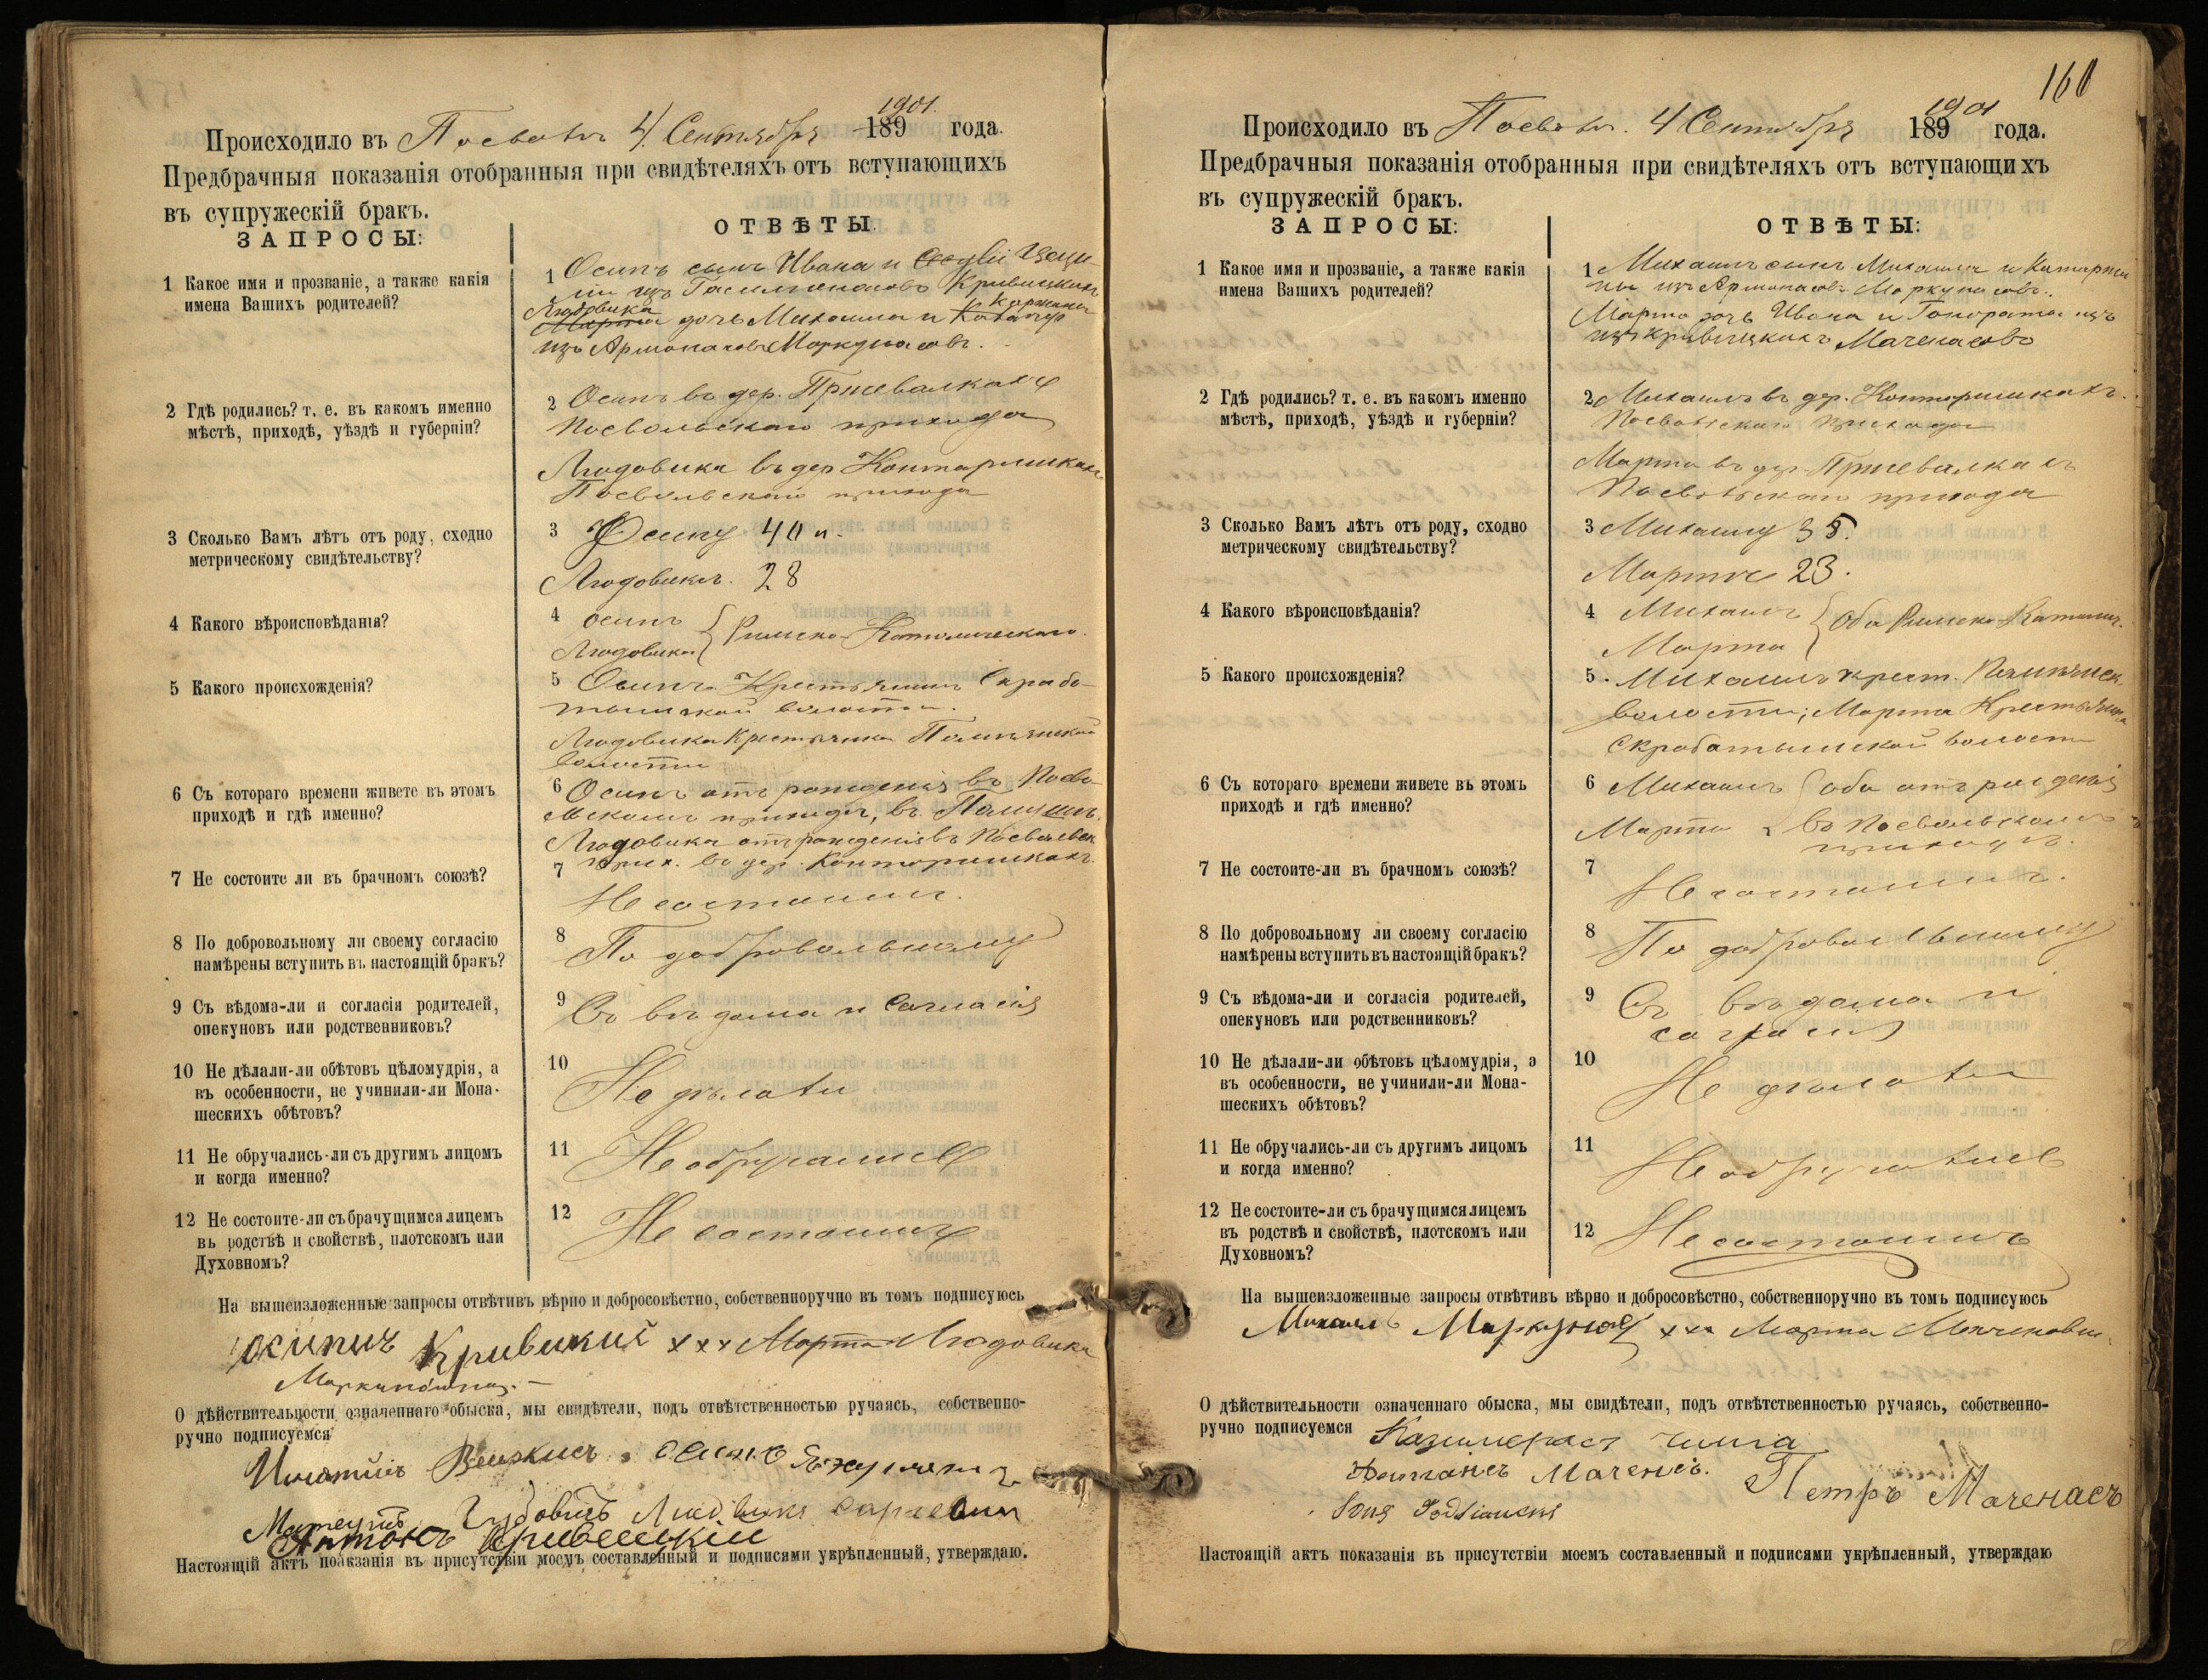 Происходило въ Посволѣ 4 Сентября 189 1901. года.
Предбрачныя показанія отобранныя при свидѣтеляхъ отъ вступающихъ
въ супружескій бракъ.
ЗАПРОСЫ:
ОТВѢТЫ.
1 Какое имя и прозваніе, а также какія
имена Вашихъ родителей?
1 Осипъ сынъ Ивана и
изъ Кривицкихъ
Людовика
Марта дочь Михаила и
изъ Маркунасовъ.
2 Гдѣ родились? т. е. въ какомъ именно
мѣстѣ, приходѣ, уѣздѣ и губерніи?
2 Осипъ въ дер. Пршевалкахъ
Посвольскаго прихода
Людовика въ дер Контаришкахъ
Посвольскаго прихода
3 Сколько Вамъ лѣтъ отъ роду, сходно
метрическому свидѣтельству?
3 Осипу 40 л.
Людовикѣ. 28
4 Какого вѣроисповѣданія?
4 Осипъ
Людовика Римско-Католическаго.
5 Какого происхожденія?
5 Осипъ Крестьянинъ Скрабо-
тышской волости.
Людовика Крестьянка
волости
6 Съ котораго времени живете въ этомъ
приходѣ и гдѣ именно?
6 Осипъ отъ рожденія въ Посво-
льскомъ приходѣ, въ
Людовика отъ рожденія въ Посвольск
прих. въ дер. Контаришкахъ.
7 Не состоите ли въ брачномъ союзѣ?
7 Не состоимъ.
8 По добровольному ли своему согласію
намѣрены вступить въ настоящій бракъ?
8 По добровольному
9 Съ вѣдома-ли и согласія родителей,
опекуновъ или родственниковъ?
9 Съ вѣдома и согласія
10 Не дѣлали-ли обѣтовъ цѣломудрія, а
въ особенности, не учинили-ли Мона-
шескихъ обѣтовъ?
10 Не дѣлали
11 Не обручались-ли съ другимъ лицомъ
и когда именно?
11 Не обручались
12 Не состоите-ли съ брачущимся лицемъ
въ родствѣ и свойствѣ, плотскомъ или
Духовномъ?
12 Не состоимъ
На вышеизложенные запросы отвѣтивъ вѣрно и добросовѣстно, собственноручно въ томъ подписуюсь
Кривицкій ххх Марта Людовика
О дѣйствительности означеннаго обыска, мы свидѣтели, подъ отвѣтственностью ручаясь, собственно-
ручно подписуемся
Антонъ
Настоящій актъ показанія въ присутствіи моемъ составленный и подписями укрѣпленный, утверждаю.
160
Происходило въ Посволѣ. 4 Сентября 189 1901 года.
Предбрачныя показанія отобранныя при свидѣтеляхъ отъ вступающихъ
въ супружескій бракъ.
ЗАПРОСЫ:
ОТВѢТЫ:
1 Какое имя и прозваніе, а также какія
имена Вашихъ родителей?
1 Михаилъ сынъ Михаила и Катаржи
ны изъ Маркунасовъ.
Марта дочь Ивана и Гонораты изъ
изъ Кривицкихъ Маченасовъ
2 Гдѣ родились? т. е. въ какомъ именно
мѣстѣ, приходѣ, уѣздѣ и губерніи?
2 Михаилъ въ дер. Контаришкахъ.
Посвольскаго прихода
Марта въ дер. Пршевалкахъ
Посвольскаго прихода
3 Сколько Вамъ лѣтъ отъ роду, сходно
метрическому свидѣтельству?
3 Михаилу 35.
Мартѣ 23.
4 Какого вѣроисповѣданія?
4 Михаилъ
Марта оба Римско-Католич.
5 Какого происхожденія?
5. Михаилъ крест.
волости; Марта Крестьянка
Скработышской волости
6 Съ котораго времени живете въ этомъ
приходѣ и гдѣ именно?
6 Михаилъ оба отъ рожденія
Марта въ Посвольскомъ
приходѣ.
7 Не состоите-ли въ брачномъ союзѣ?
7 Не состоимъ.
8 По добровольному ли своему согласію
намѣрены вступить въ настоящій бракъ?
8 По добровольному
9 Съ вѣдома-ли и согласія родителей,
опекуновъ или родственниковъ?
9 Съ вѣдома и
согласія
10 Не дѣлали-ли обѣтовъ цѣломудрія, а
въ особенности, не учинили-ли Мона-
шескихъ обѣтовъ?
10 Не дѣлали
11 Не обручались-ли съ другимъ лицомъ
и когда именно?
11 Не обручались
12 Не состоите-ли съ брачущимся лицемъ
въ родствѣ и свойствѣ, плотскомъ или
Духовномъ?
12 Не состоимъ
На вышеизложенные запросы отвѣтивъ вѣрно и добросовѣстно, собственноручно въ томъ подписуюсь
ххх Марта
О дѣйствительности означеннаго обыска, мы свидѣтели, подъ отвѣтственностью ручаясь, собственно-
ручно подписуемся
Маченсъ.
Петръ Маченасъ
Настоящій актъ показанія въ присутствіи моемъ составленный и подписями укрѣпленный, утверждаю